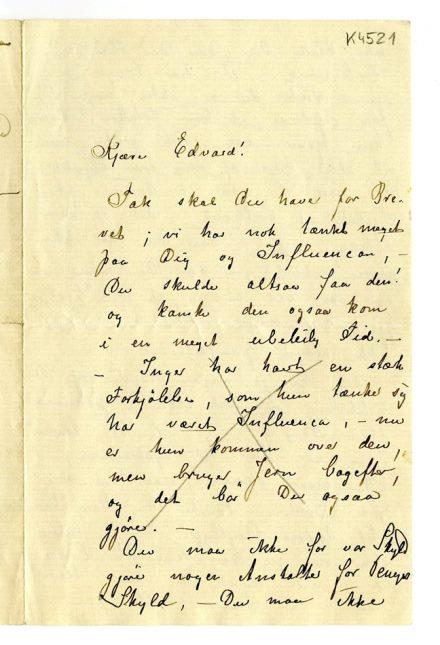 K4521
Kjære Edvard!
Tak skal Du have for Bre-
vet; vi har nok tænkt meget
paa Dig og Influencan, –
Du skulde altsaa faa den!
og kanske den ogsaa kom
i en meget ubeleilig Tid. –
– Inger har havt en stærk
Forkjølelse, som hun tænker sig
har været Influenca, – nu
er hun kommen over den,
men bruger Jern bagefter,
og det bør Du ogsaa
gjøre. –
Du maa ikke for vor Skyld
gjøre nogen Anstalte for Penges
Skyld, – Du maa ikke